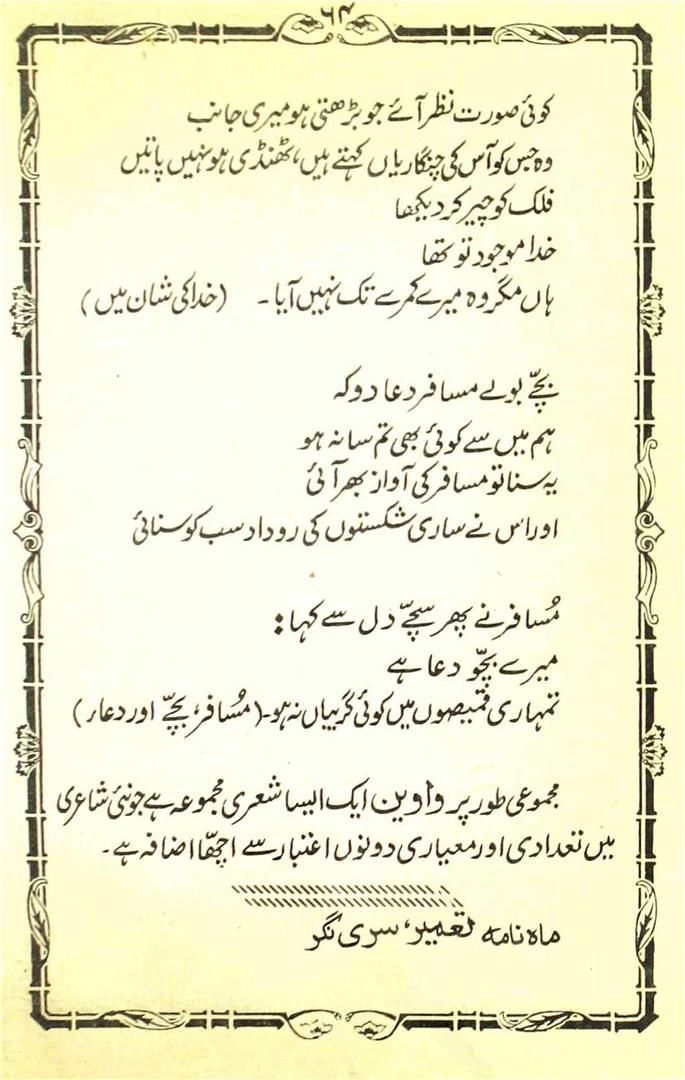 ۶۴
کوئی صورت نظر آئے جو بڑھتی ہو میری جانب
وہ جس کو آس کی چنگاریاں کہتے ہیں، ٹھنڈی ہو نہیں پاتیں
فلک کو چیر کر دیکھا
خدا موجود تو تھا
ہاں مگر وہ میرے کمرے تک نہیں آیا ۔ (خدا کی شان میں)
بچّے بولے مسافر دعا دو کہ
ہم میں سے کوئی بھی تم سا نہ ہو
یہ سنا تو مسافر کی آواز بھر آئی
اور اس نے ساری شکستوں کی روداد سب کو سنائی
مُسافر نے پھر سچّے دل سے کہا :
میرے بچّو دعا ہے
تمہاری قمیصوں میں کوئی گریباں نہ ہو۔ (مُسافر، بچّے اور دعاء)
مجموعی طور پر واوین ایک ایسا شعری مجموعہ ہے جو نئی شاعری
میں تعدادی اور معیاری دونوں اعتبار سے اچھّا اضافہ ہے ۔
ماہ نامہ تعمیر، سری نگر